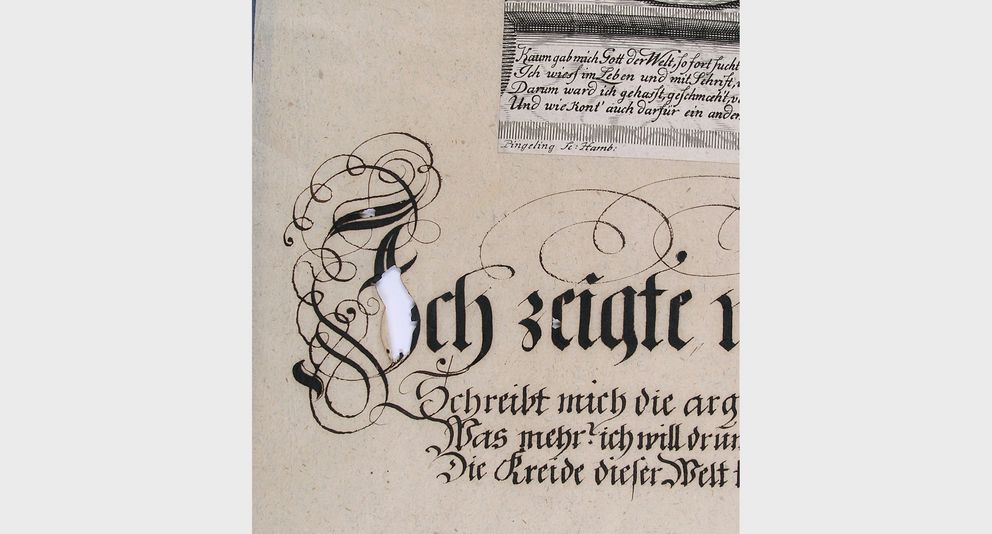 Kaum gab mich Gott der Welt, so fort sucht
Ich wiess im Leben und mit Schrift,
Darum ward ich gehasst, geschmæht, v
Und wie kont' auch darfür ein ander
Pingeling Sc: Hamb:
Ich zeigte
Schreibt mich die arg
Was mehr? ich will drum
Die Kreide dieser Welt